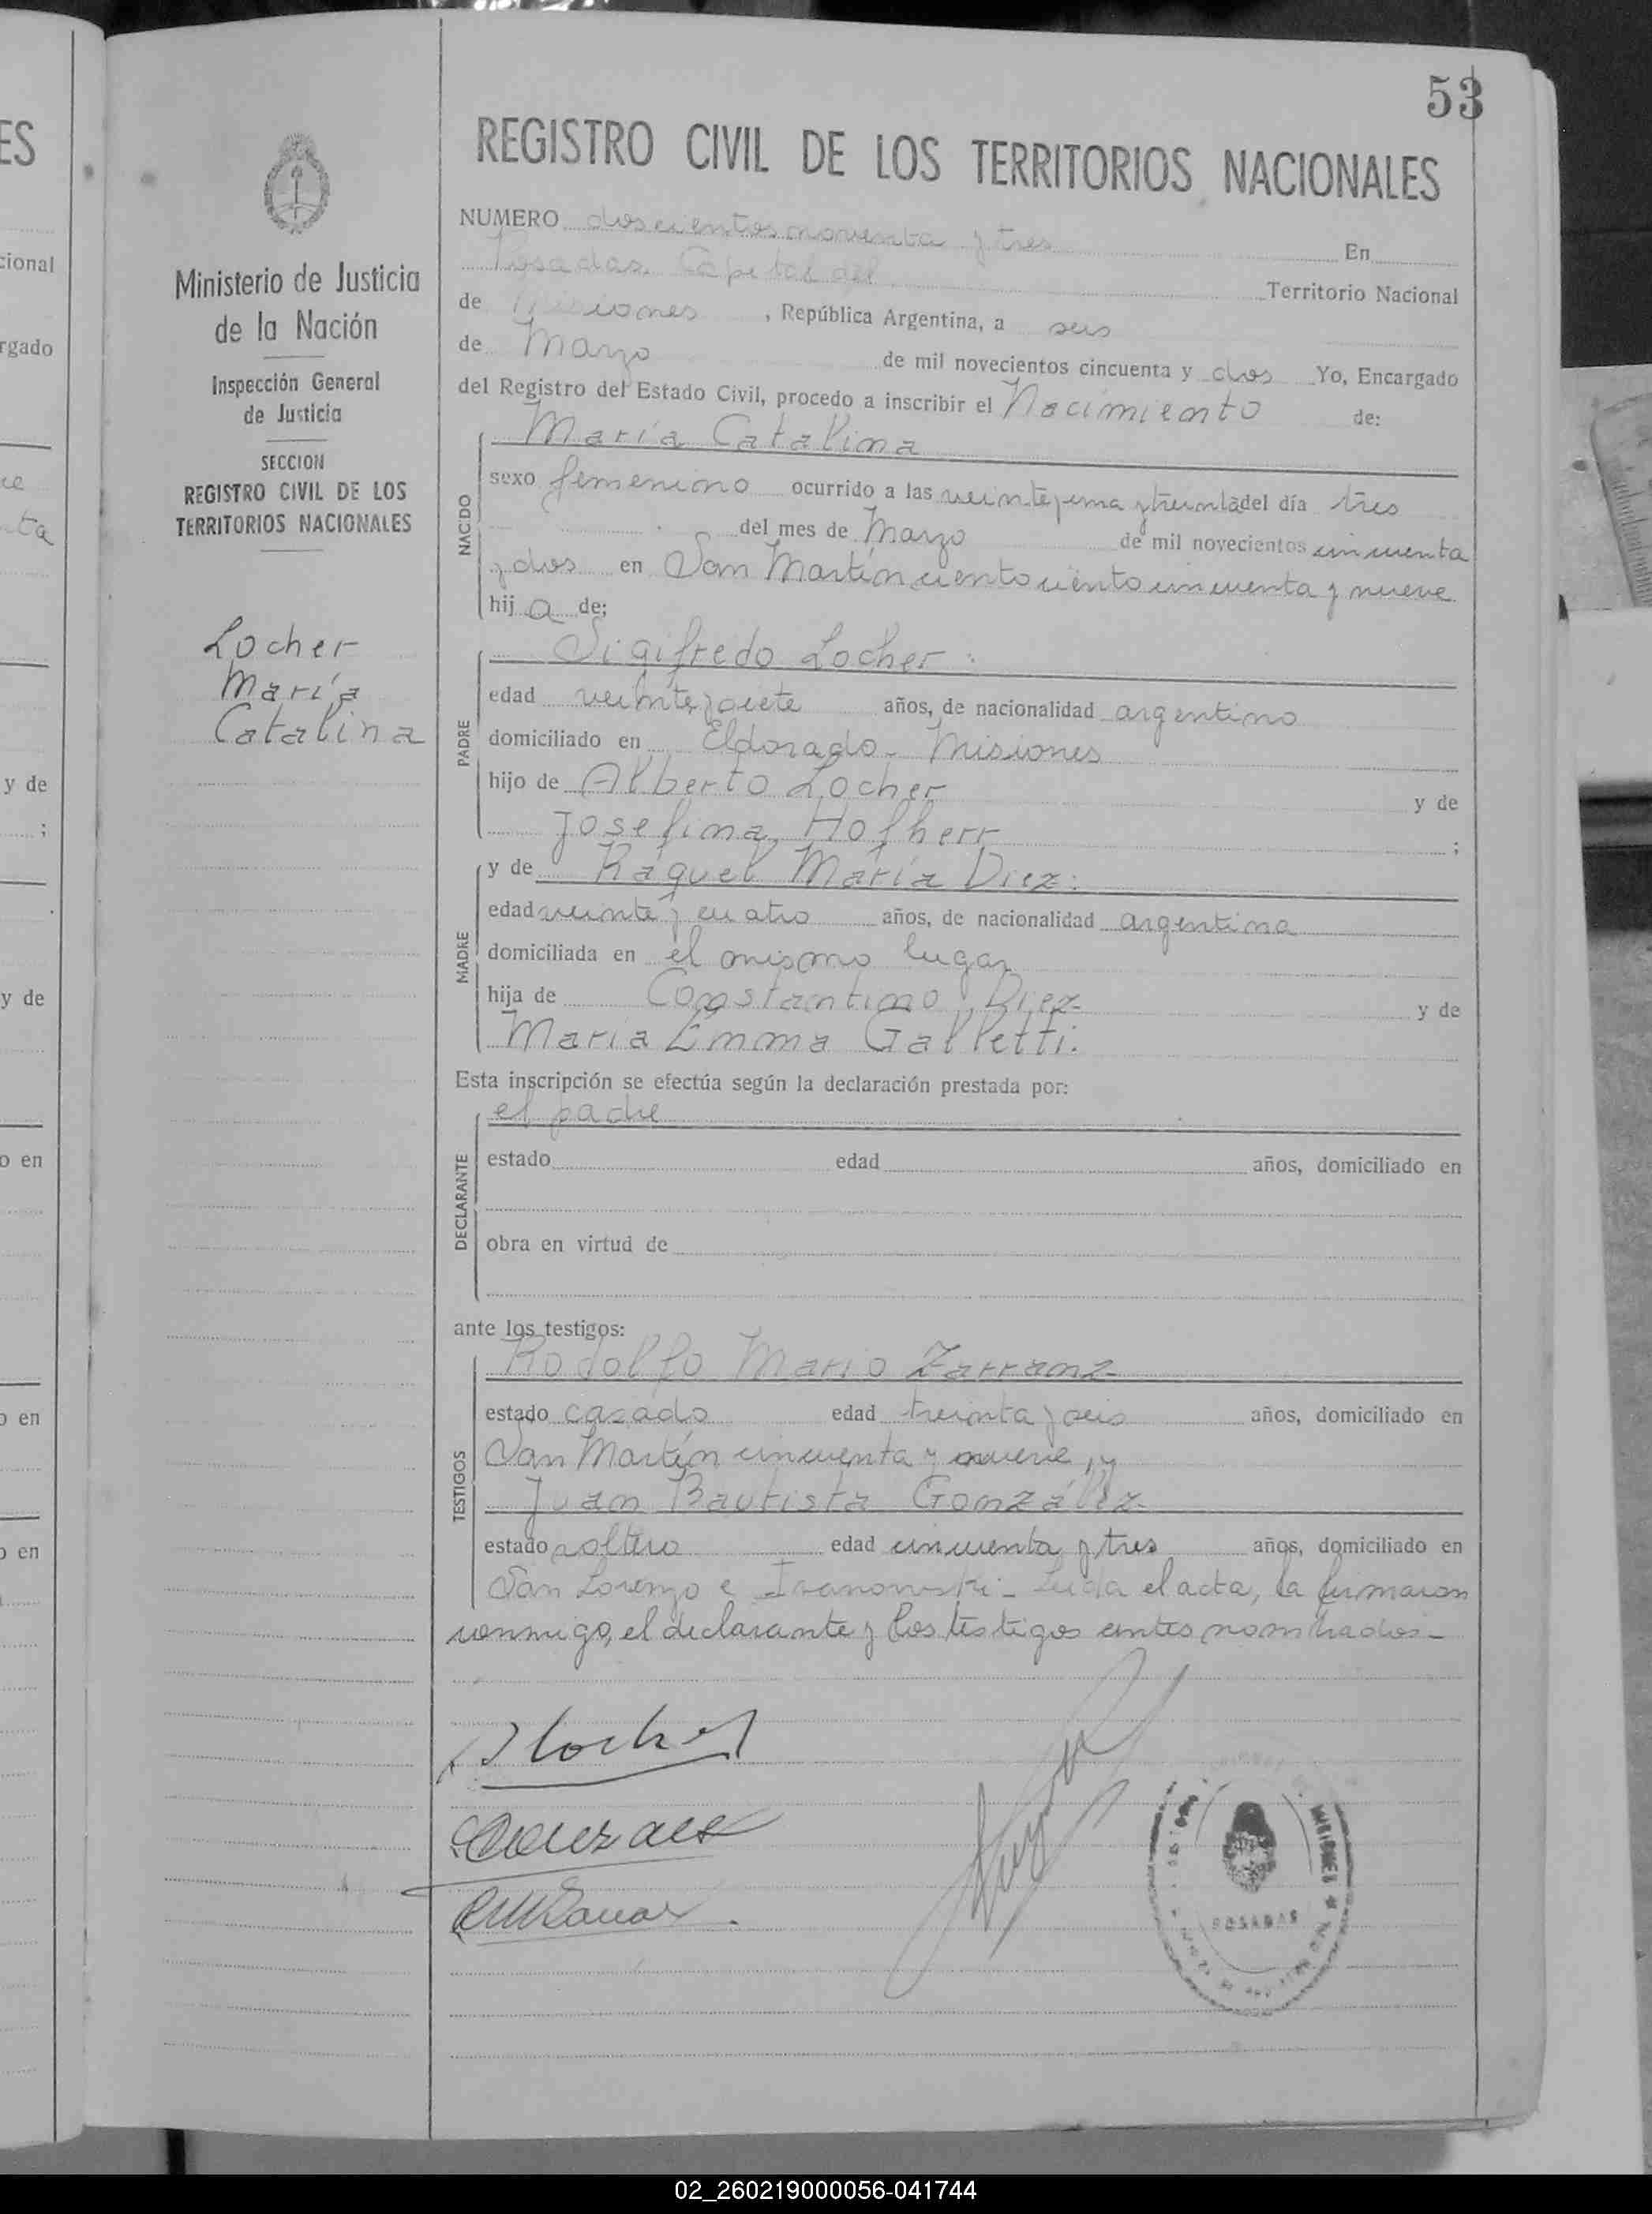 53
REGISTRO CIVIL DE LOS TERRITORIOS NACIONALES
Ministerio de Justicia
de la Nación
Inspección General
de Justicia
SECCION
REGISTRO CIVIL DE LOS
TERRITORIOS NACIONALES
Locher
María
Catalina
NUMERO doscientos noventa y tres En
Posadas, Capital del Territorio Nacional
de Misiones, República Argentina, a seis
de Marzo de mil novecientos cincuenta y dos Yo, Encargado
del Registro del Estado Civil, procedo a inscribir el Nacimiento de:
NACIDO
María Catalina
sexo femenino ocurrido a las veinte y una y treinta del día tres
del mes de Marzo de mil novecientos cincuenta
y dos en San Martín ciento ciento cincuenta y nueve
hij a de;
PADRE
Sigifredo Locher.
edad veinte y siete años, de nacionalidad argentino
domiciliado en Eldorado - Misiones
hijo de Alberto Locher y de
Josefina Hofherr ;
MADRE
y de Raquel María Diez.
edad veinte y cuatro años, de nacionalidad argentina
domiciliada en el mismo lugar
hija de Constantino Diez y de
María Emma Galletti.
Esta inscripción se efectúa según la declaración prestada por:
DECLARANTE
el padre
estado edad años, domiciliado en
obra en virtud de
ante los testigos:
TESTIGOS
Rodolfo Mario Zarranz
estado casado edad treinta y seis años, domiciliado en
San Martín cincuenta y nueve, y
Juan Bautista González
estado soltero edad cincuenta y tres años, domiciliado en
San Lorenzo e Ivanowski - Leída el acta, la firmaron
conmigo, el declarante y los testigos antes nombrados -
Locher
POSADAS
MISIONES
ES
cional
rgado
y de
;
y de
o en
o en
o en
02_260219000056-041744